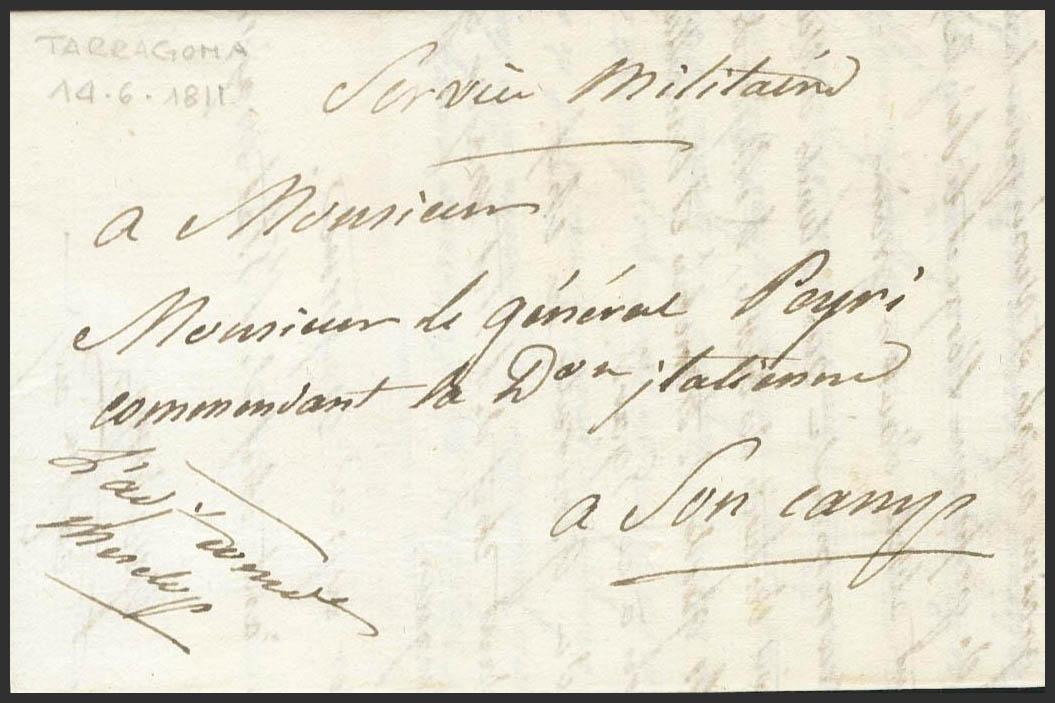 TARRAGONA
14.6.1811.
Service Militaire
a Monsieur
Monsieur le général Peyri
commendant la Don jtalienne
a Son camp
L'adj. comdt